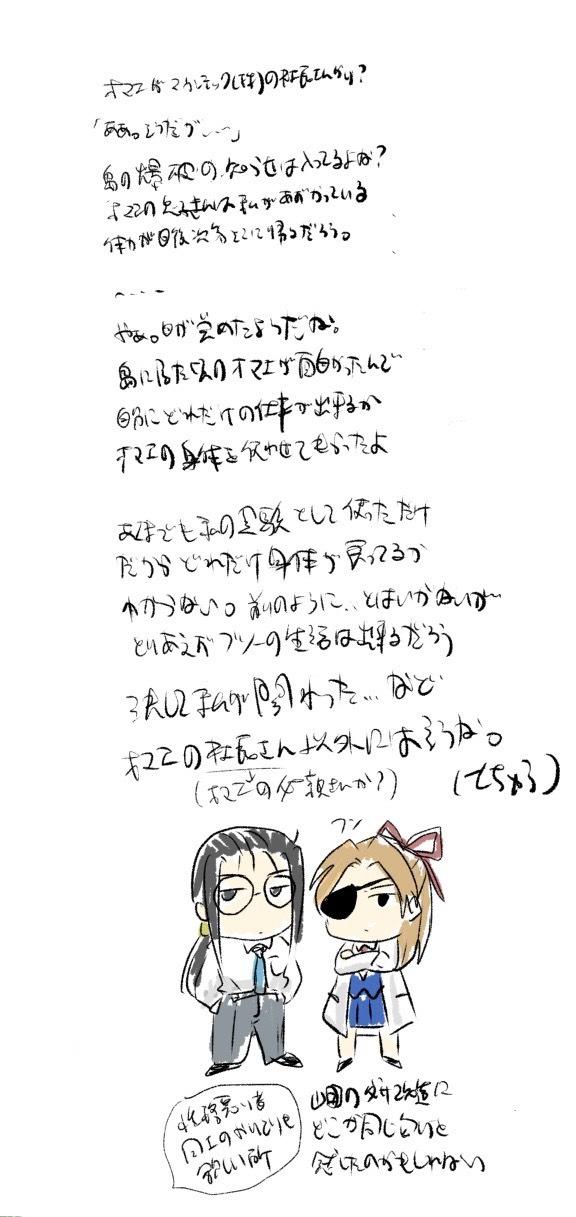 オマエがマカンテック(株)の社長さんかい?
「ああ。そうだが……」
島の爆破の知らせは入ってるよな?
オマエの さんは私があずかっている
体力が回復次第そこに帰るだろう。
〜---
やあ。目が覚めたようだね。
島に居た時のオマエが面白かったんで
自分にどれだけの仕事が出来るか
オマエの身体を使わせてもらったよ
あくまでも私の実験として使っただけ
だからどれだけ身体が戻ってるか
わからない。前のように..とはいかないが
とりあえずフツーの生活は出来るだろう
決して私が関わった...など
オマエの社長さん以外には言うな。
(オマエの父親さんか?)
フン
性格悪い者
同士のやりとりを
欲しい所
の 改造に
どこか同じ匂いを
感じたのかもしれない